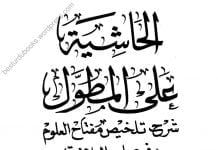 الحاشية
على المطول
شرح تلخيص مفتاح العلوم
besturdubooks.wordpress.com